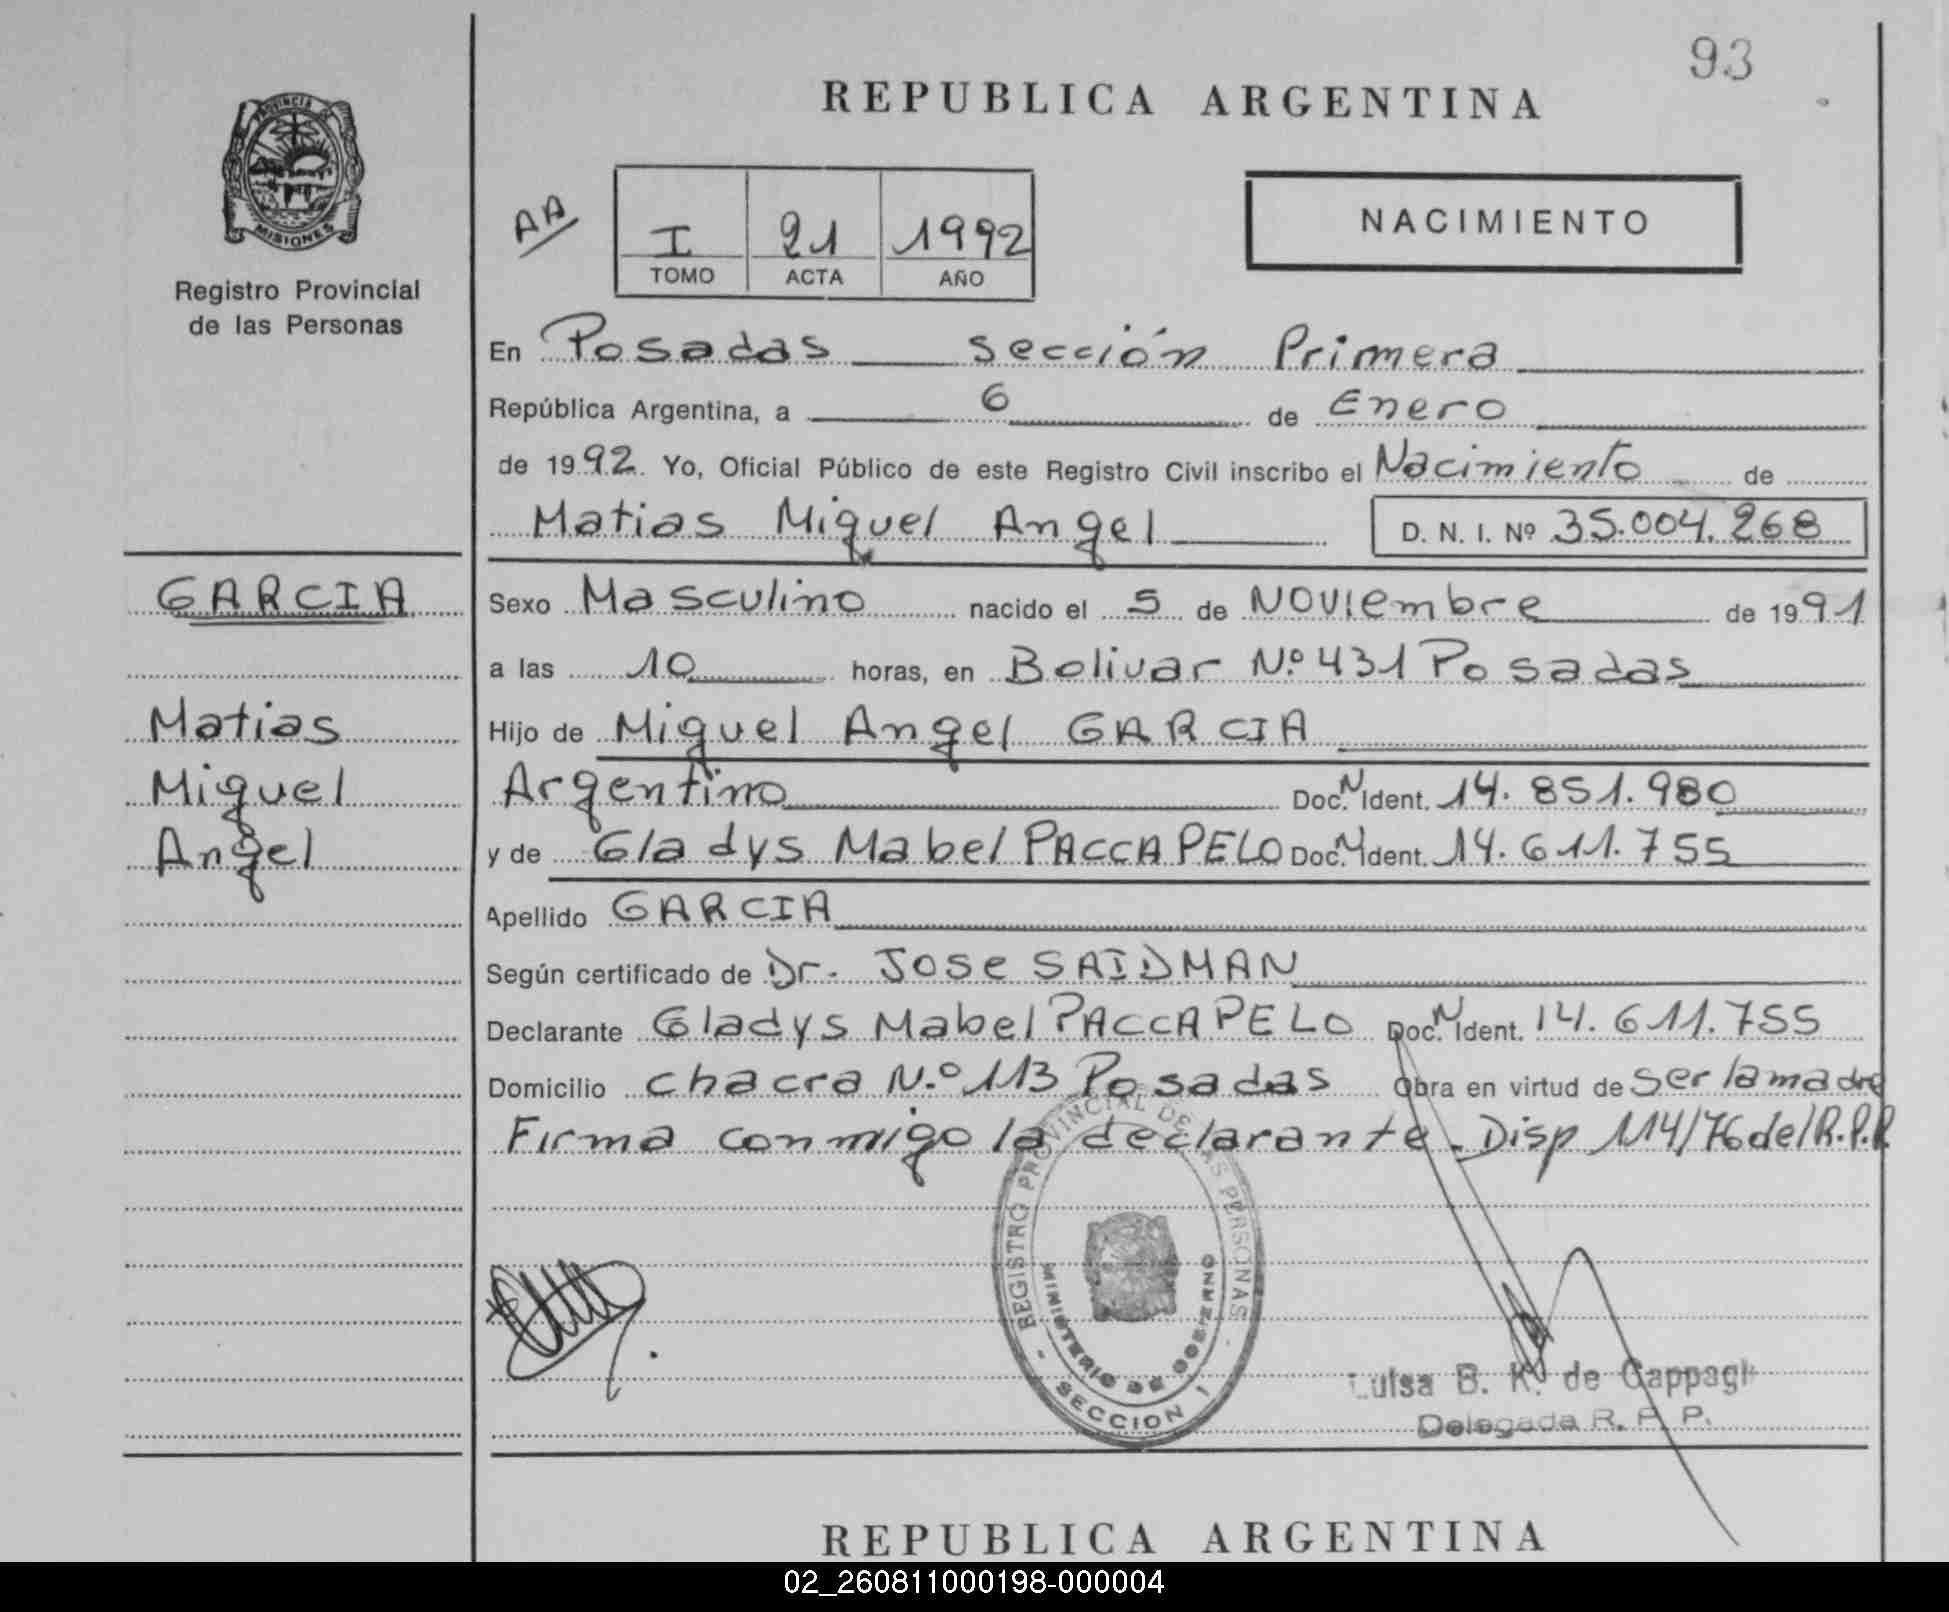 93
REPUBLICA ARGENTINA
PROVINCIA DE
MISIONES
Registro Provincial
de las Personas
AA
I 21 1992
TOMO ACTA AÑO
NACIMIENTO
En Posadas sección Primera
República Argentina, a 6 de Enero
de 1992. Yo, Oficial Público de este Registro Civil inscribo el Nacimiento de
Matias Miguel Angel D. N. I. Nº 35.004.268
GARCIA
Matias
Miguel
Angel
Sexo Masculino nacido el 5 de Noviembre de 1991
a las 10 horas, en Bolivar Nº 431 Posadas
Hijo de Miguel Angel GARCIA
Argentino Doc. N Ident. 14.851.980
y de Gladys Mabel PACCAPELO Doc. N Ident. 14.611.755
Apellido GARCIA
Según certificado de Dr. JOSE SAIDMAN
Declarante Gladys Mabel PACCAPELO Doc. N Ident. 14.611.755
Domicilio chacra N.º 113 Posadas Obra en virtud de ser la madre
Firma conmigo la declarante. Disp 114/76 del R.P.P.
REGISTRO PROVINCIAL DE LAS PERSONAS
MINISTERIO DE GOBIERNO
- SECCION 1 -
Luisa B. K. de Cappagli
Delegada R. P. P.
REPUBLICA ARGENTINA
02_260811000198-000004